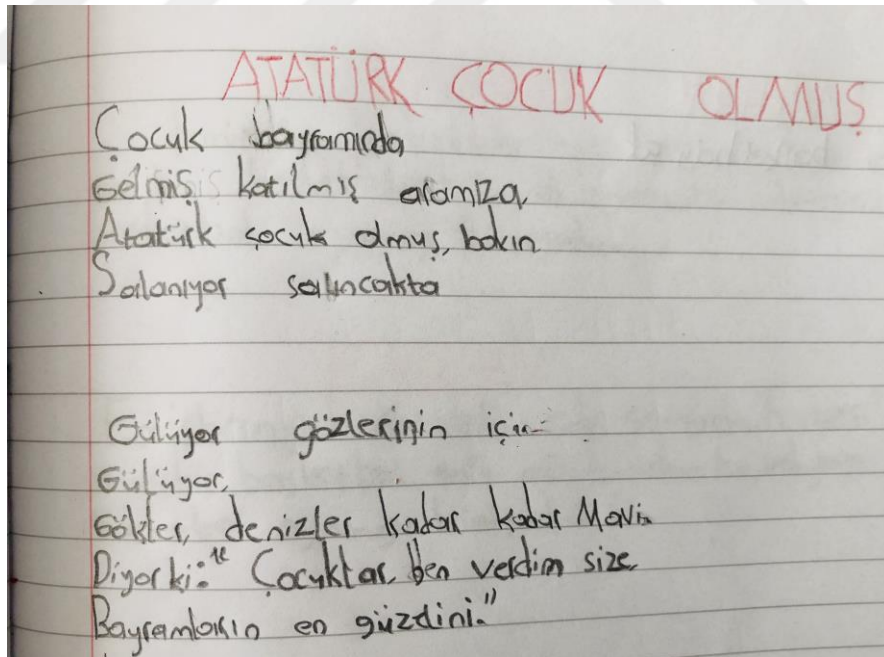 ATATÜRK ÇOCUK OLMUŞ
Çocuk bayramında
Gelmiş katılmış aramıza,
Atatürk çocuk olmuş, bakın
Salanıyor salıncakta
Gülüyor gözlerinin için
Gülüyor,
Gökler, denizler kadar kadar Mavi.
Diyorki: "Çocuklar, ben verdim size,
Bayramların en güzdini."